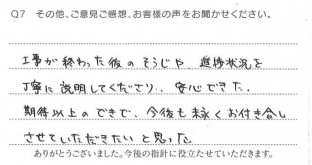 Q7 その他、ご意見ご感想、お客様の声をお聞かせください。
工事が終わった後のそうじや、進捗状況を
丁寧に説明してくださり、安心できた。
期待以上のできで、今後も末永くお付き合い
させていただきたいと思った。
ありがとうございました。今後の指針に役立たせていただきます。